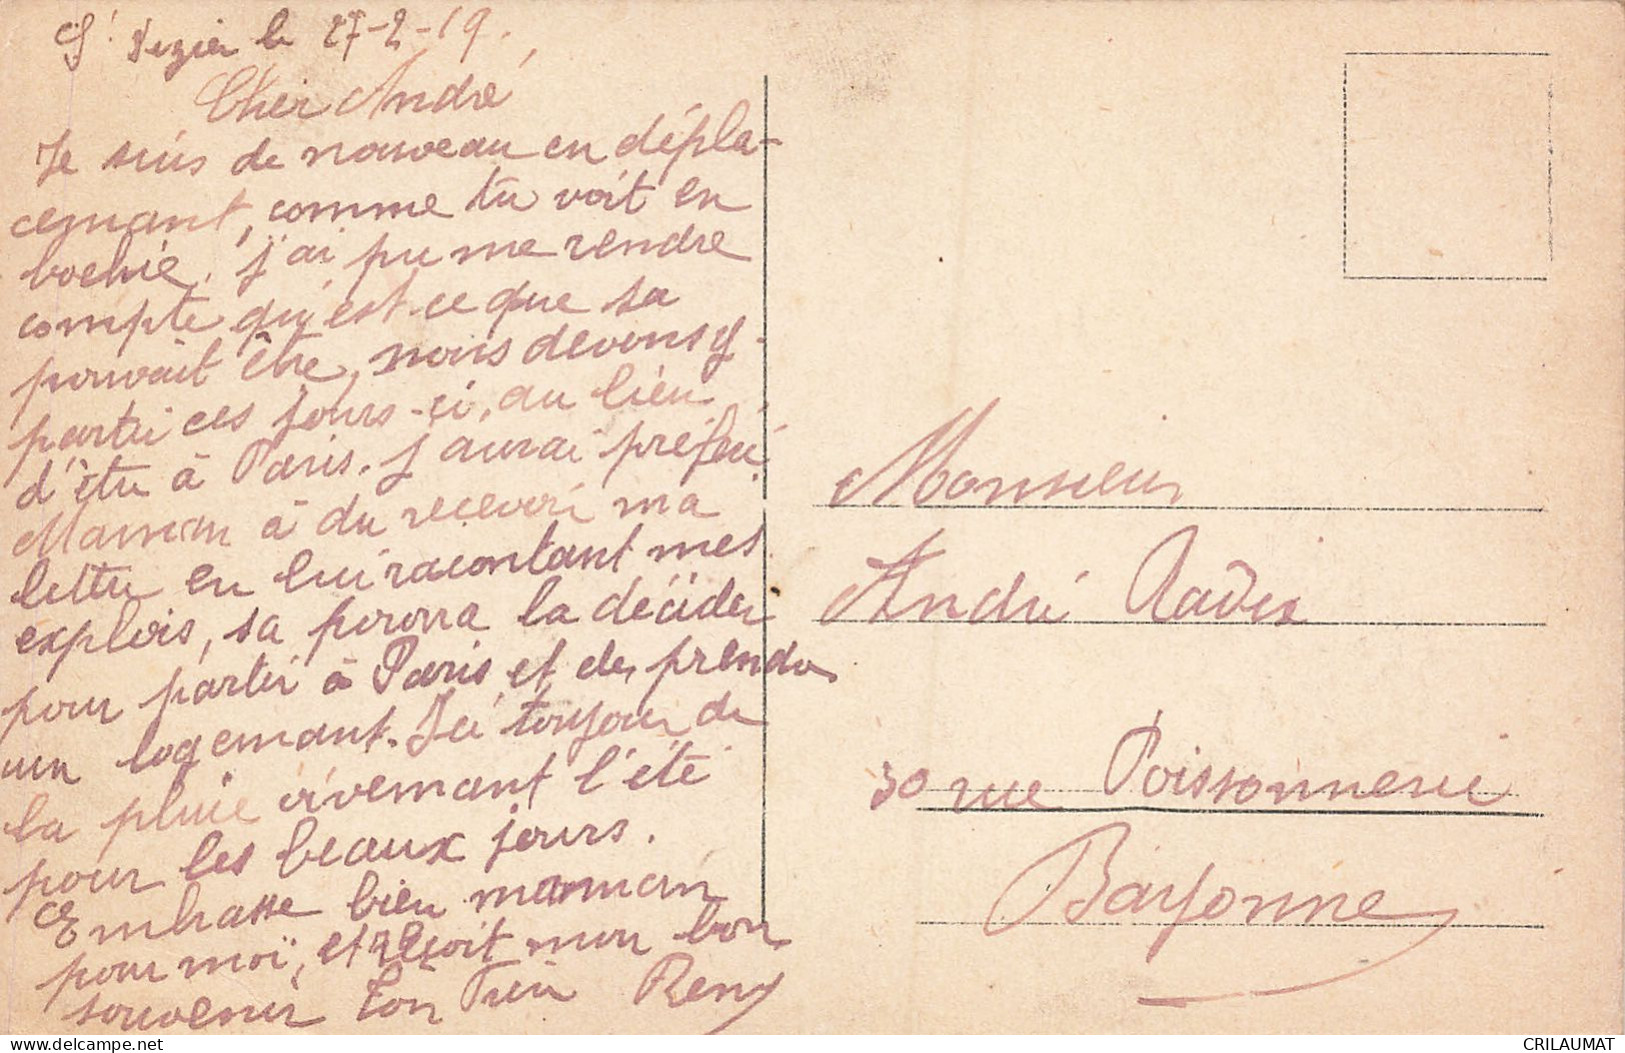 le 27-2-19.
Cher André
Je suis de nouveau en dépla-
cemant, comme tu voit en
bochie, j'ai pu me rendre
compte qu'est ce que sa
pouvait être, nous devons y
partir ces jours-ci, au lieu
d'être à Paris. j'aurai préféré
Maman à du recevoir ma
lettre en lui racontant mes
explois, sa pourra la décider
pour partir à Paris et de prendre
un logemant. Ici toujour de
la pluie vivemant l'été
pour les beaux jours.
Embrasse bien maman
pour moi, et reçoit mon bon
souvenir Ton Frère Remy
Monsieur
André
30 rue Poissonnerie
Bayonne
CRILAUMAT